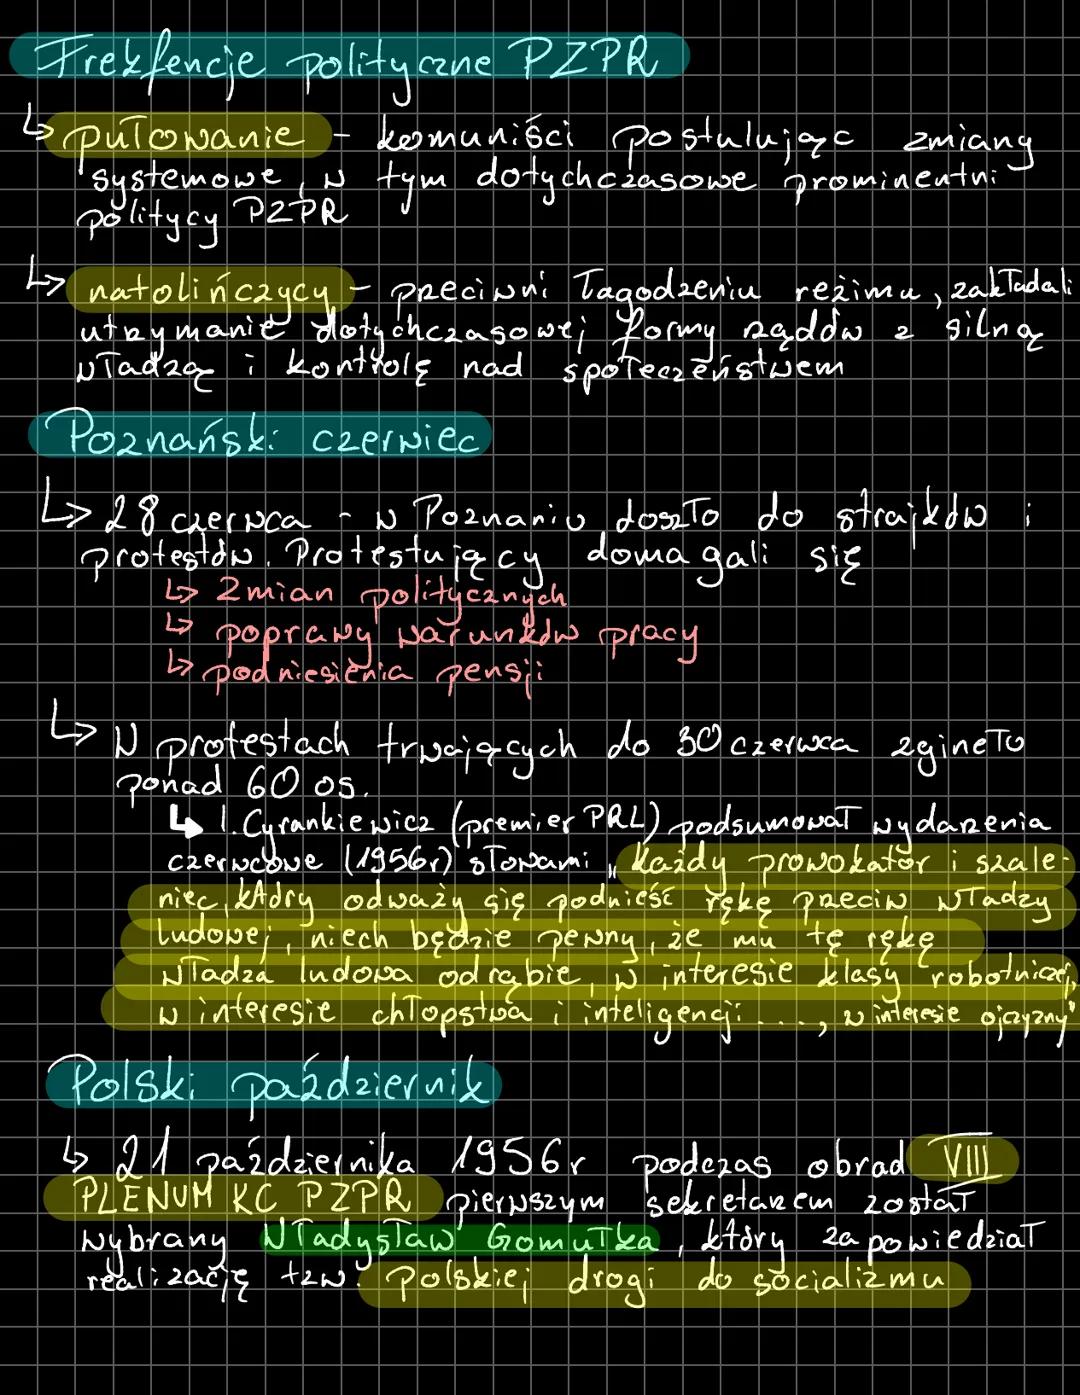 Frekfencje polityczne PZPR
↳ pułowanie - komuniści postulując zmiany
systemowe, w tym dotychczasowe prominentni
politycy PZPR
↳ natolińczycy - przeciwni łagodzeniu reżimu, zakładali
utrzymanie dotychczasowej formy rządów z silną
władzą i kontrolę nad społeczeństwem
Poznański czerwiec
↳ 28 czerwca - w Poznaniu doszło do strajków i
protestów. Protestujący domagali się
↳ zmian politycznych
↳ poprawy warunków pracy
↳ podniesienia pensji
↳ W protestach trwających do 30 czerwca zgineło
ponad 60 os.
↳ 1. Cyrankiewicz (premier PRL) podsumował wydarzenia
czerwcowe (1956r) słowami „każdy prowokator i szale-
niec, który odważy się podnieść rękę przeciw władzy
ludowej, niech będzie pewny, że mu tę rękę
władza ludowa odrąbie, w interesie klasy robotniczej,
w interesie chłopstwa i inteligencji ..., w interesie ojczyzny"
Polski październik
↳ 21 października 1956r podczas obrad VIII
PLENUM KC PZPR pierwszym sekretarzem został
wybrany Władysław Gomułka, który zapowiedział
realizację tzw. Polskiej drogi do socializmu